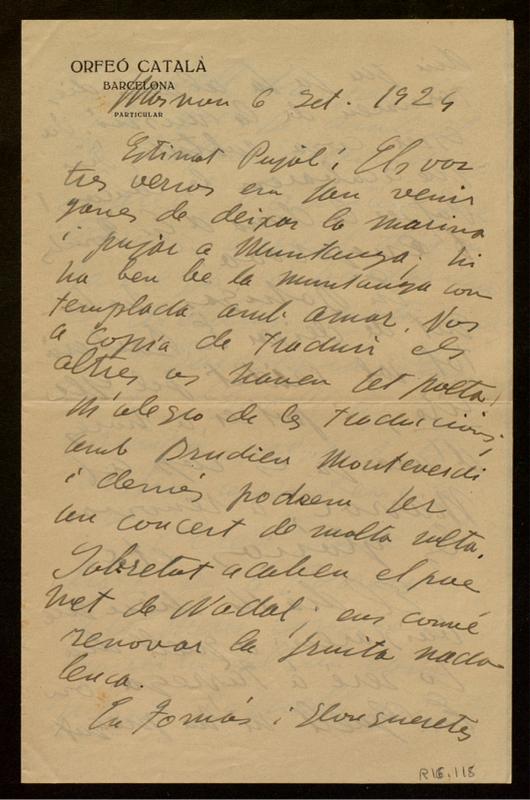 ORFEÓ CATALÀ
BARCELONA
PARTICULAR
Masnou 6 Set. 1924
Estimat Pujol: Els vos
tres versos em fan venir
ganes de deixar la marina
i pujar a Muntanya; hi
ha ben be la muntanya con
templada amb amor. Vos
a copia de traduir els
altres us haveu fet poeta!
M'alegro de les traduccions;
amb Brudieu Monteverdi
i demés podrem fer
un concert de molta volta.
Sobretot acabeu el poe
met de Nadal; ens convé
renovar la fruita nada
lenca.
En Tomás i
R16.118